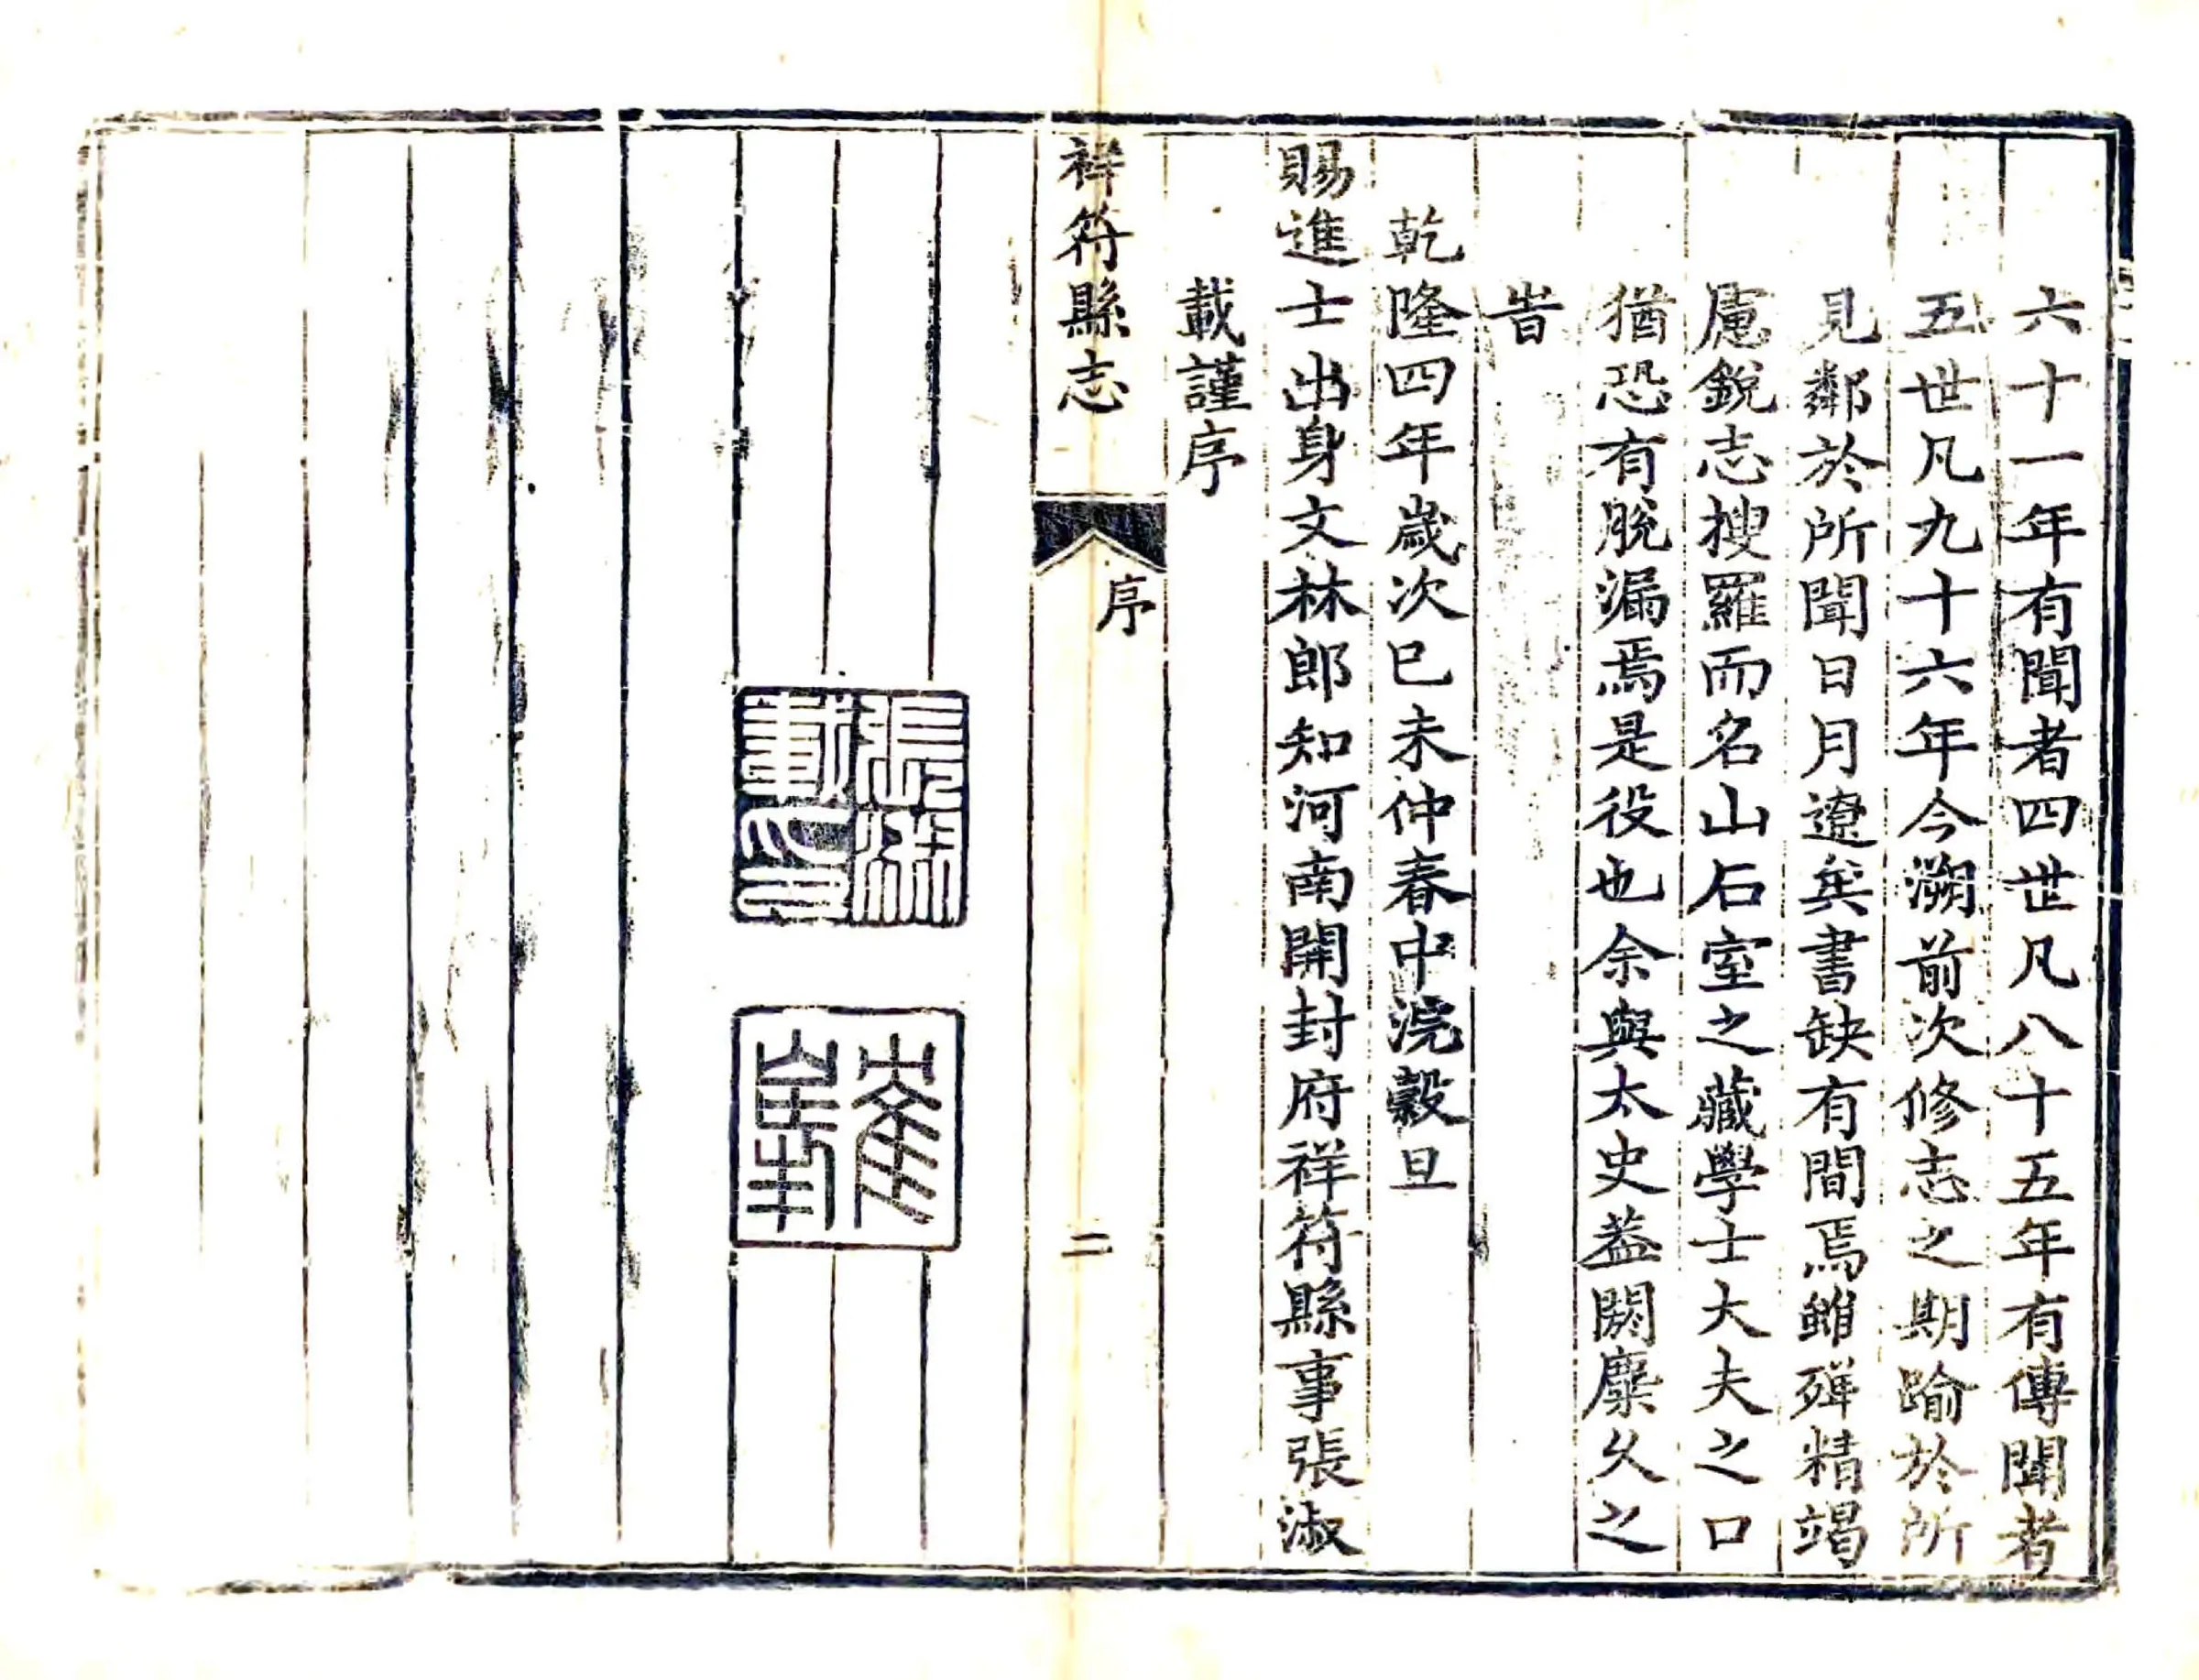 六十一年有聞者四世凡八十五年有傳聞者
五世凡九十六年今溯前次修志之期踰於所
見鄰於所聞日月遼矣書缺有間焉雖殫精竭
慮銳志搜羅而名山石室之藏學士大夫之口
猶恐有脫漏焉是役也余與太史蓋闕麋久之
旹
乾隆四年歲次己未仲春中浣穀旦
賜進士出身文林郎知河南開封府祥符縣事張淑
載謹序
祥符縣志
序
二
張淑
載印